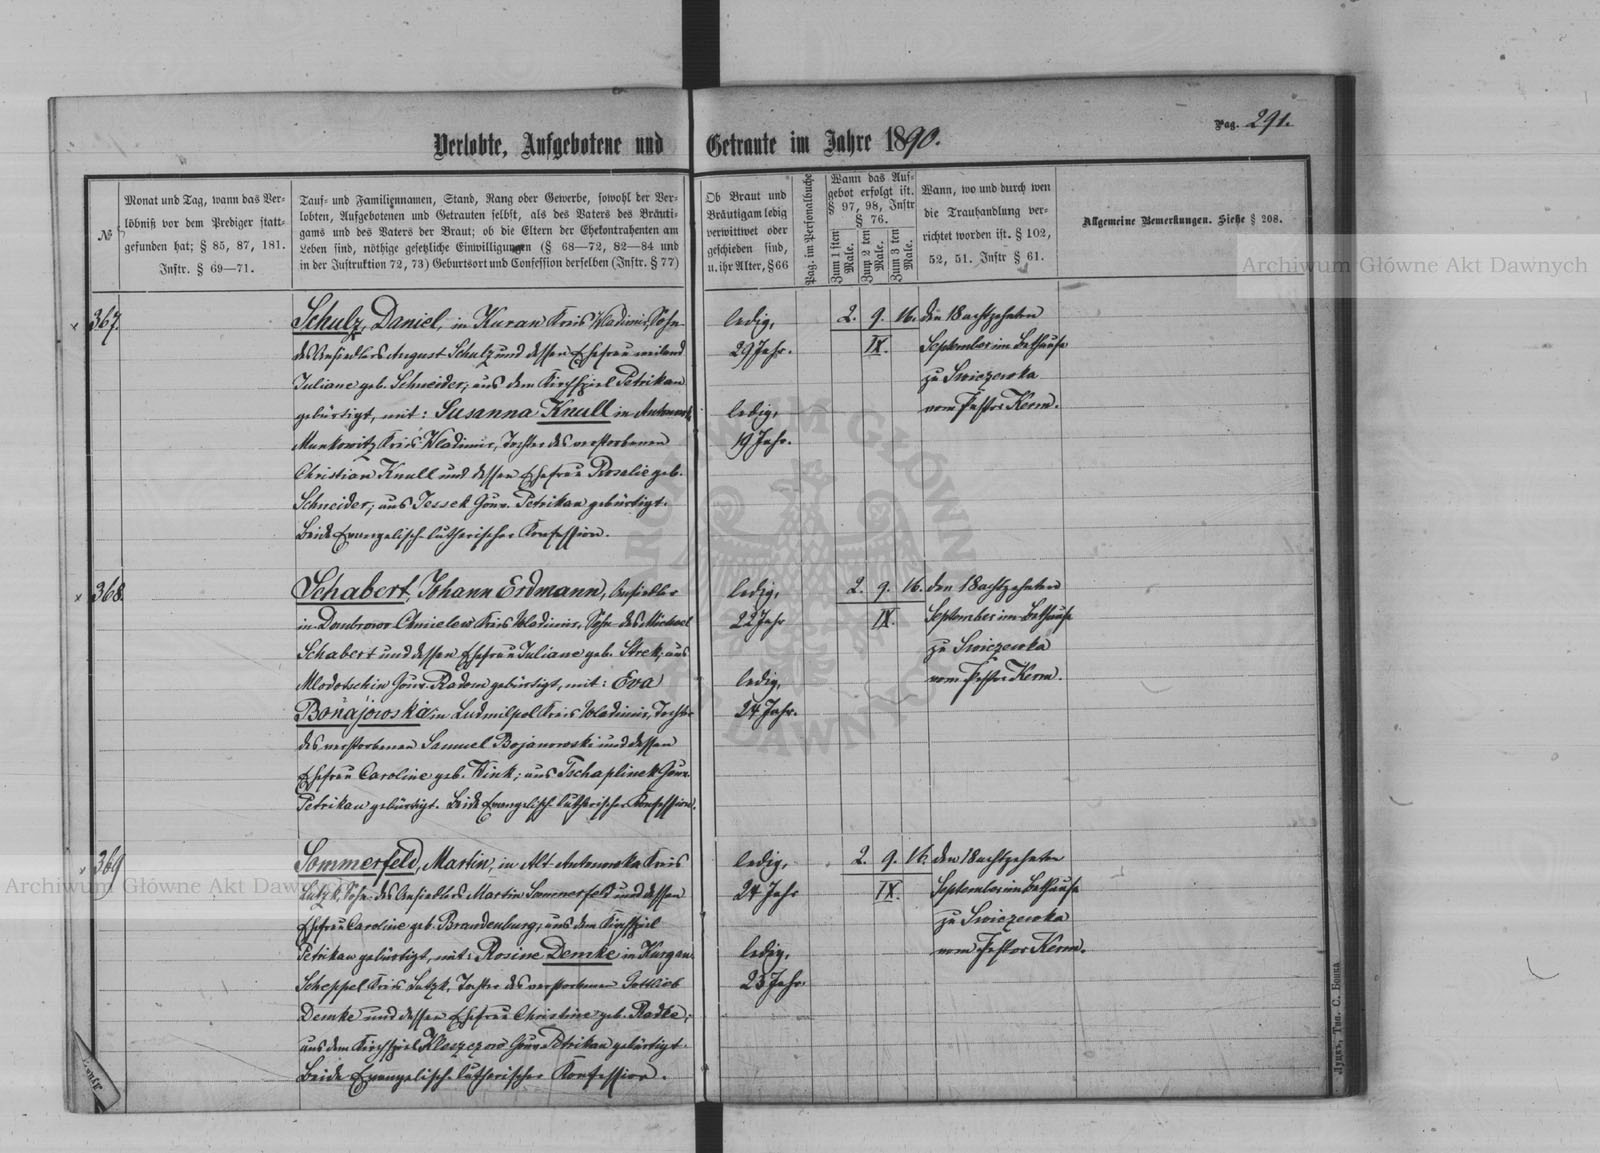 Pag. 291.
Verlobte, Aufgebotene und Getraute im Jahre 1890.
№
Monat und Tag, wann das Ver-
löbniß vor dem Prediger statt-
gefunden hat; § 85, 87, 181.
Instr. § 69—71.
Tauf- und Familiennamen, Stand, Rang oder Gewerbe, sowohl der Ver-
lobten, Aufgebotenen und Getrauten selbst, als des Vaters des Bräuti-
gams und des Vaters der Braut; ob die Eltern der Ehekontrahenten am
Leben sind, nöthige gesetzliche Einwilligungen (§ 68—72, 82—84 und
in der Instruktion 72, 73) Geburtsort und Confession derselben (Instr. § 77)
Ob Braut und
Bräutigam ledig
verwittwet oder
geschieden sind,
u. ihr Alter, § 66
Pag. im Personalbuche
Wann das Auf-
gebot erfolgt ist.
§ 97, 98, Instr
§ 76.
Zum 1 sten Male.
Zum 2 ten Male.
Zum 3 ten Male.
Wann, wo und durch wen
die Trauhandlung ver-
richtet worden ist. § 102,
52, 51. Instr § 61.
Allgemeine Bemerkungen. Siehe § 208.
367.
Schulz, Daniel, in Kuran Kreis Wladimir, Sohn
des Ansiedlers August Schulz und dessen Ehefrau weiland
Juliane geb. Schneider; aus dem Kirchspiel Petrikau
gebürtigt, mit: Susanna Knull in
Munkowitz Kreis Wladimir, Tochter des verstorbenen
Christian Knull und dessen Ehefrau Rosalie geb.
Schneider; aus Jessek Gouv. Petrikau gebürtigt.
Beide Evangelisch-lutherischer Konfession.
ledig,
29 Jahr.
ledig,
19 Jahr.
2. 9. 16.
IX.
den 18 achtzehnten
September im Bethause
zu Swiczewka
vom Pastor Kerm.
368.
Schabert, Johann Erdmann, Ansiedler
in Dombrowo Chmielew Kreis Wladimir, Sohn des Michael
Schabert und dessen Ehefrau Juliane geb. Strek; aus
Mlodotschin Gouv. Radom gebürtigt, mit: Eva
Bonajowska in Ludmilpol Kreis Wladimir, Tochter
des verstorbenen Samuel Bojanowski und dessen
Ehefrau Caroline geb. Wink; aus Tschaplinek Gouv.
Petrikau gebürtigt. Beide Evangelisch-lutherischer Konfession.
ledig,
22 Jahr
ledig,
24 Jahr.
2. 9. 16.
IX.
den 18 achtzehnten
September im Bethause
zu Swiczewka
vom Pastor Kerm.
369
Sommerfeld, Martin, in Alt Antonowka Kreis
Lutzk, Sohn des Ansiedlers Martin Sommerfeld und dessen
Ehefrau Caroline geb. Brandenburg; aus dem Kirchspiel
Petrikau gebürtigt, mit: Rosine Demke in Kurgan
Scheppel Kreis Lutzk, Tochter des verstorbenen Gottlieb
Demke und dessen Ehefrau Christine geb. Radke;
aus dem Kirchspiel Kleszczow Gouv. Petrikau gebürtigt.
Beide Evangelisch-lutherischer Konfession.
ledig,
24 Jahr
ledig,
23 Jahr.
2. 9. 16.
IX.
den 18 achtzehnten
September im Bethause
zu Swiczewka
vom Pastor Kerm.
Луцкъ, Тип. С. Бонка
Archiwum Główne Akt Dawnych
Archiwum Główne Akt Dawnych